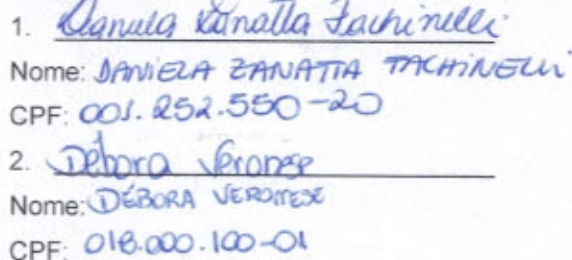 1. Daniela Zanatta Tachinelli
Nome: DANIELA ZANATTA TACHINELLI
CPF: 001.252.550-20
2. Débora Veronese
Nome: DÉBORA VERONESE
CPF: 018.000.100-01